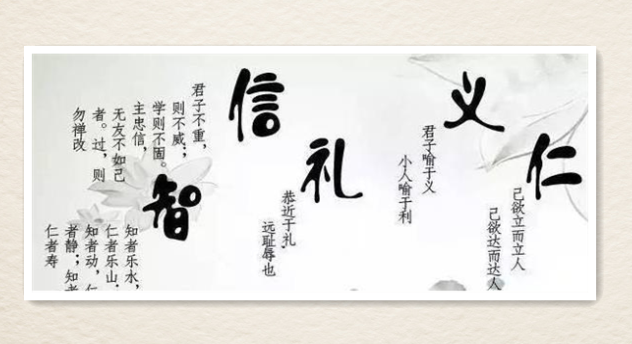 仁
己欲立而立人
己欲达而达人
义
君子喻于义
小人喻于利
礼
恭近于礼,
远耻辱也
信
君子不重,
则不威;
学则不固。
主忠信,
无友不如己
者。过,则
勿禅改
智
知者乐水,
仁者乐山;
知者动,仁
者静;知者
仁者寿